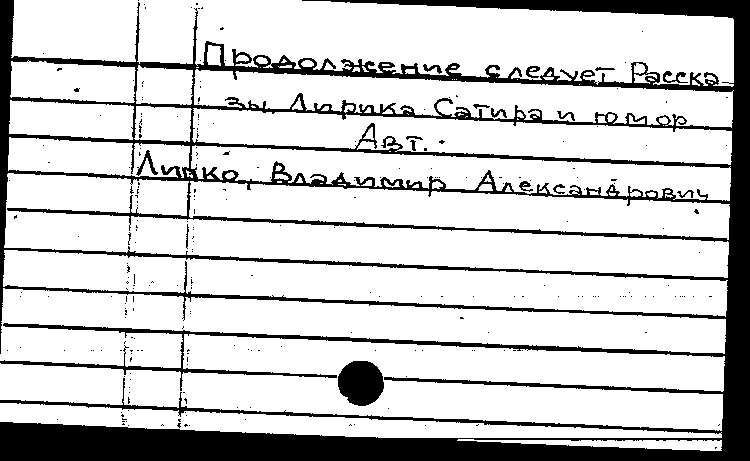 Продолжение следует Расска-
зы. Лирика Сатира и юмор
Авт.:
Липко, Владимир Александрович